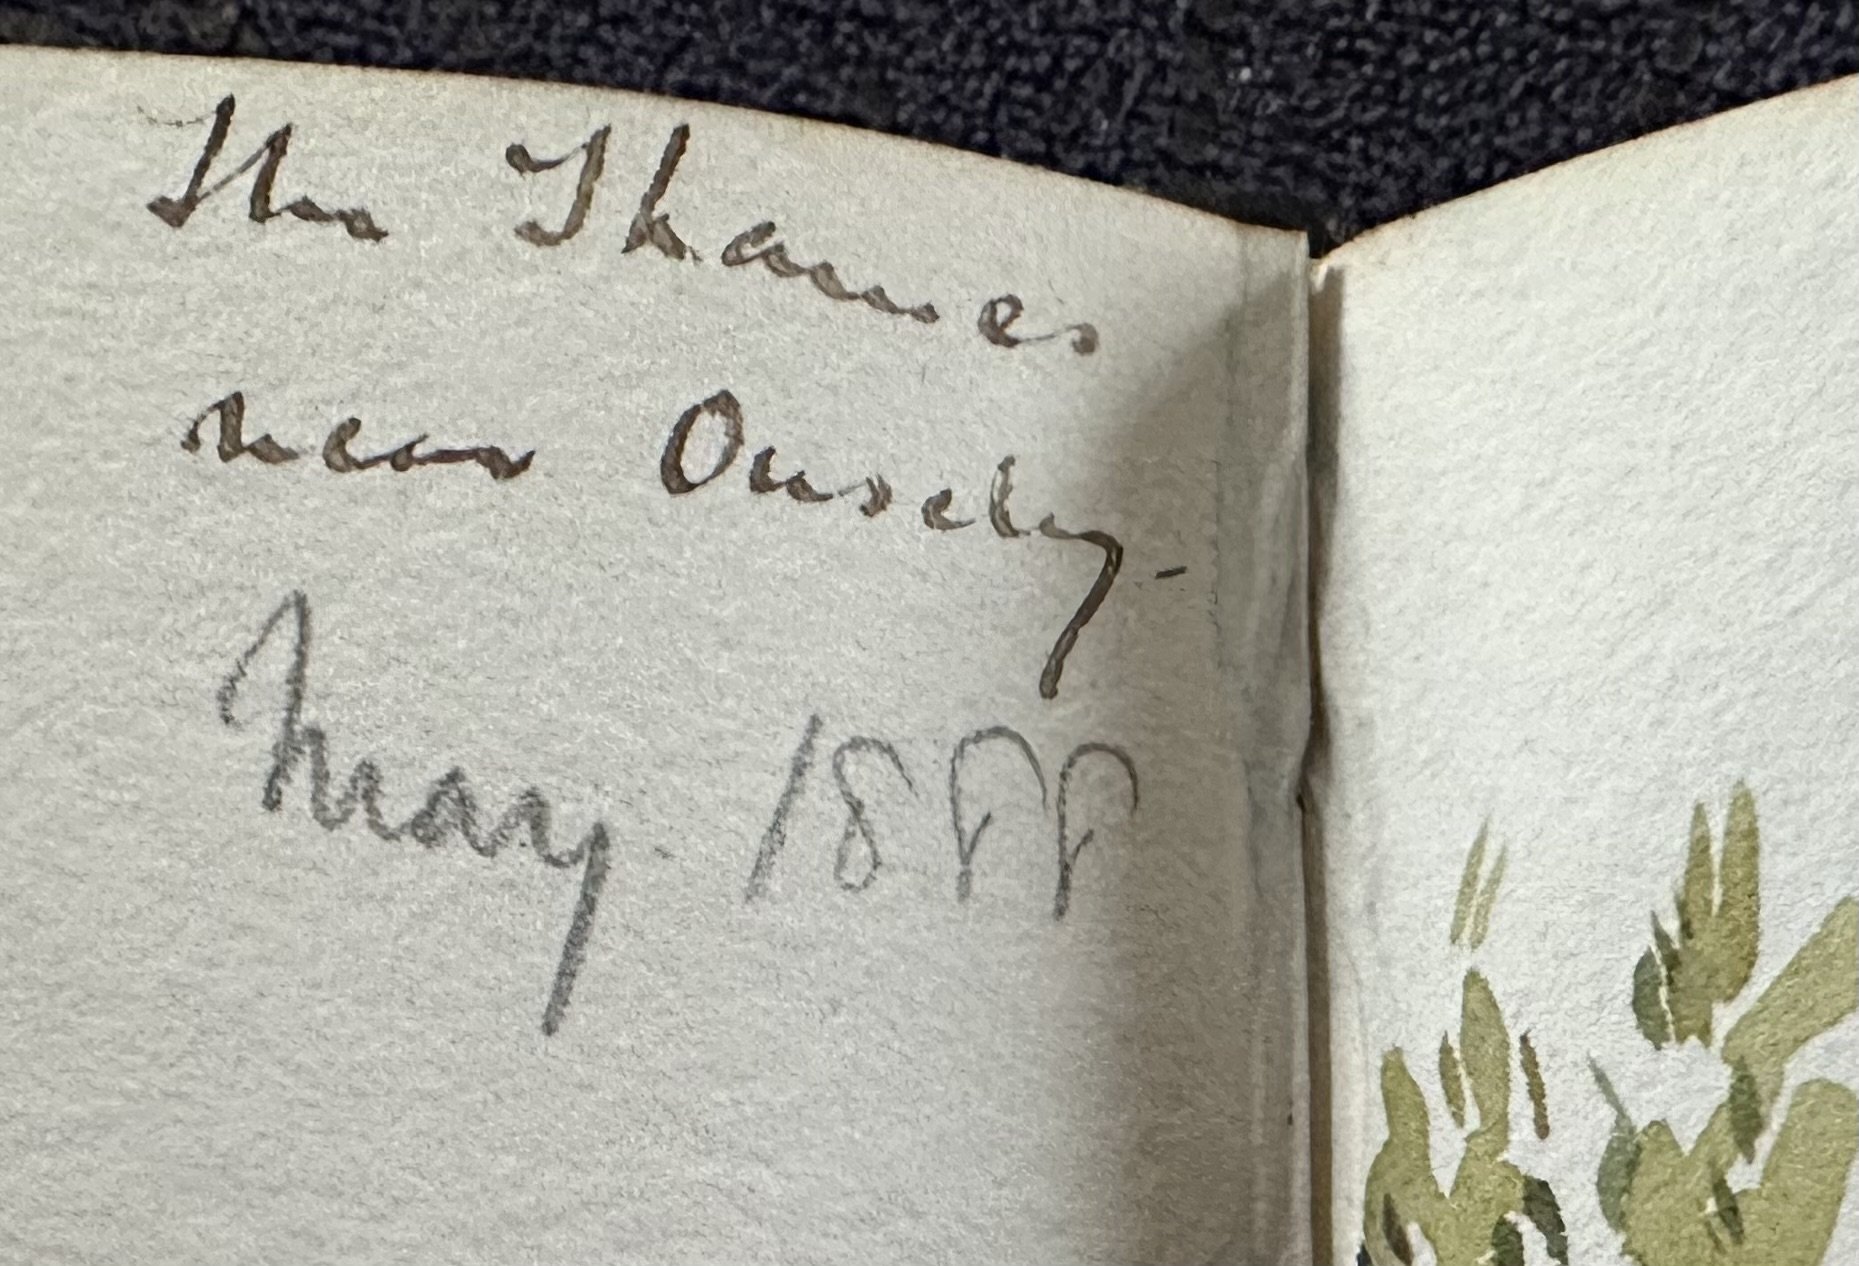 The Thames
near Ously -
May